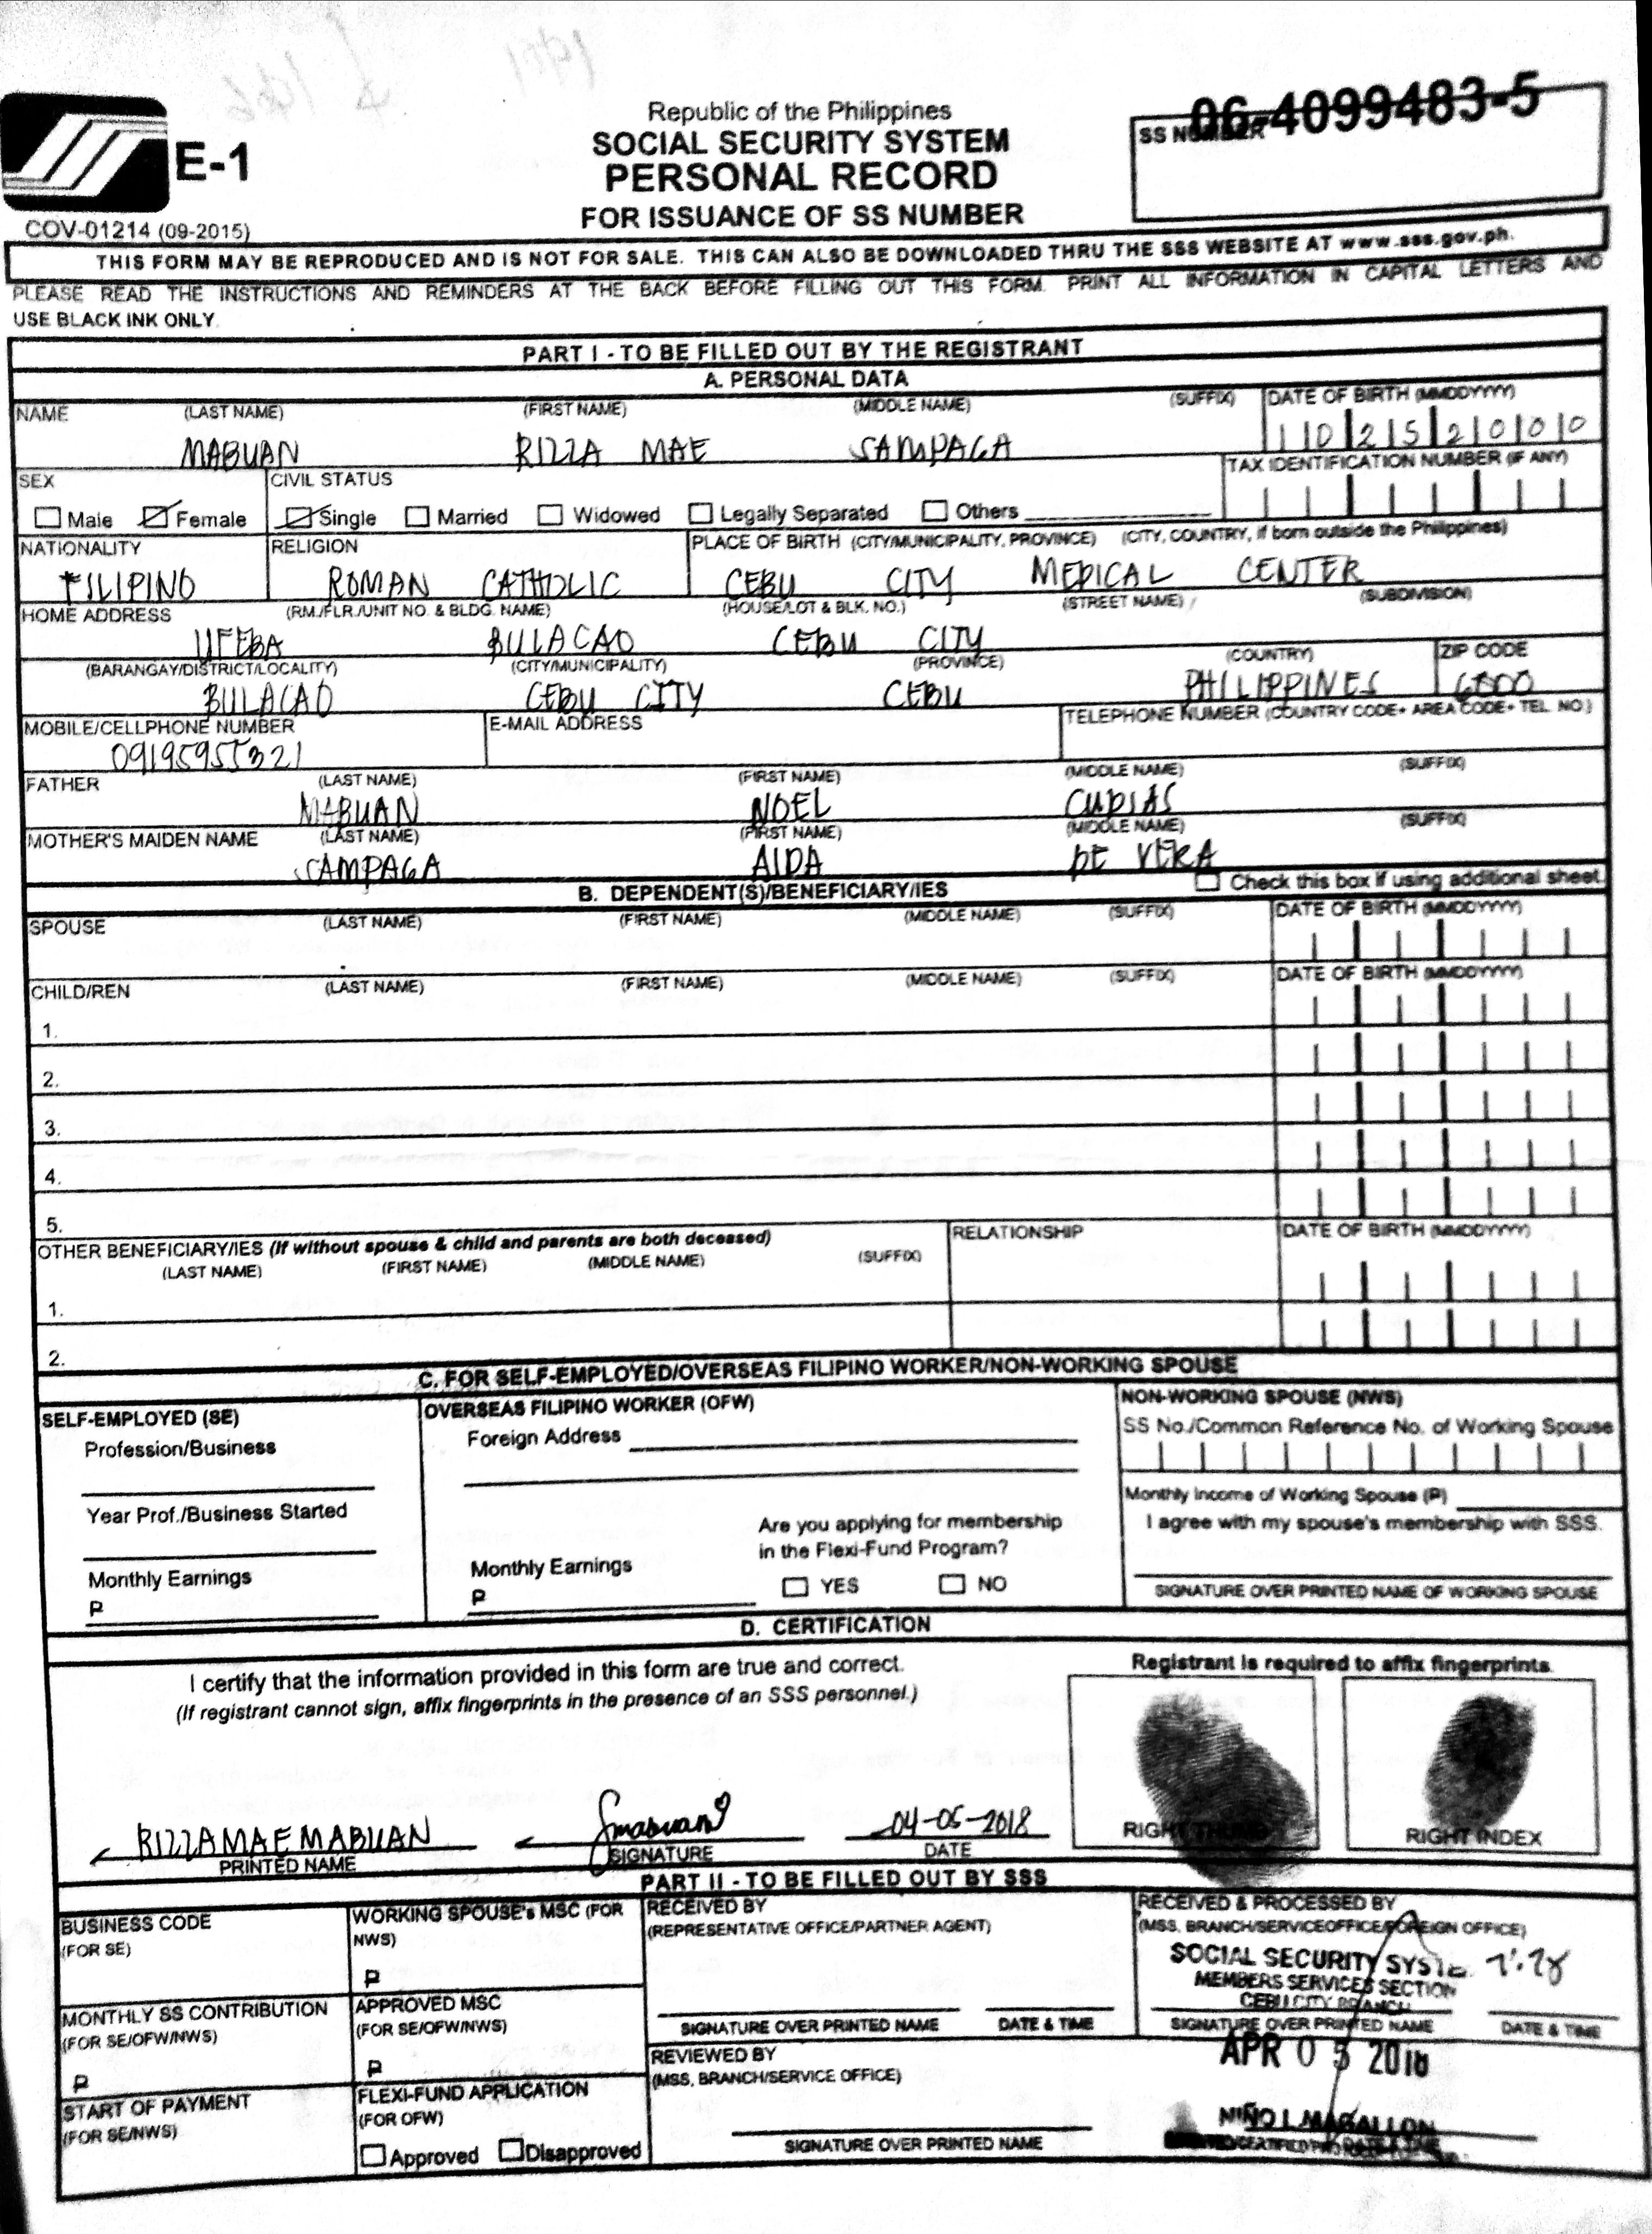 Republic of the Philippines
SOCIAL SECURITY SYSTEM
PERSONAL RECORD
FOR ISSUANCE OF SS NUMBER
E-1
COV-01214 (09-2015)
SS NUMBER
06-4099483-5
THIS FORM MAY BE REPRODUCED AND IS NOT FOR SALE. THIS CAN ALSO BE DOWNLOADED THRU THE SSS WEBSITE AT www.sss.gov.ph.
PLEASE READ THE INSTRUCTIONS AND REMINDERS AT THE BACK BEFORE FILLING OUT THIS FORM. PRINT ALL INFORMATION IN CAPITAL LETTERS AND
USE BLACK INK ONLY.
PART I - TO BE FILLED OUT BY THE REGISTRANT
A. PERSONAL DATA
NAME (LAST NAME) (FIRST NAME) (MIDDLE NAME) (SUFFIX) DATE OF BIRTH (MMDDYYYY)
MABUAN RIZZA MAE SAMPAGA 10252000
SEX CIVIL STATUS TAX IDENTIFICATION NUMBER (IF ANY)
Male Female Single Married Widowed Legally Separated Others
NATIONALITY RELIGION PLACE OF BIRTH (CITY/MUNICIPALITY, PROVINCE) (CITY, COUNTRY, if born outside the Philippines)
FILIPINO ROMAN CATHOLIC CEBU CITY MEDICAL CENTER
HOME ADDRESS (RM./FLR./UNIT NO. & BLDG. NAME) (HOUSE/LOT & BLK. NO.) (STREET NAME) (SUBDIVISION)
UFEBA BULACAO CEBU CITY
(BARANGAY/DISTRICT/LOCALITY) (CITY/MUNICIPALITY) (PROVINCE) (COUNTRY) ZIP CODE
BULACAO CEBU CITY CEBU PHILIPPINES 6000
MOBILE/CELLPHONE NUMBER E-MAIL ADDRESS TELEPHONE NUMBER (COUNTRY CODE+ AREA CODE+ TEL. NO.)
09195955321
FATHER (LAST NAME) (FIRST NAME) (MIDDLE NAME) (SUFFIX)
MABUAN NOEL CUDIAS
MOTHER'S MAIDEN NAME (LAST NAME) (FIRST NAME) (MIDDLE NAME) (SUFFIX)
SAMPAGA AIDA DE VERA
B. DEPENDENT(S)/BENEFICIARY/IES Check this box if using additional sheet.
SPOUSE (LAST NAME) (FIRST NAME) (MIDDLE NAME) (SUFFIX) DATE OF BIRTH (MMDDYYYY)
CHILD/REN (LAST NAME) (FIRST NAME) (MIDDLE NAME) (SUFFIX) DATE OF BIRTH (MMDDYYYY)
1.
2.
3.
4.
5.
OTHER BENEFICIARY/IES (If without spouse & child and parents are both deceased) RELATIONSHIP DATE OF BIRTH (MMDDYYYY)
(LAST NAME) (FIRST NAME) (MIDDLE NAME) (SUFFIX)
1.
2.
C. FOR SELF-EMPLOYED/OVERSEAS FILIPINO WORKER/NON-WORKING SPOUSE
SELF-EMPLOYED (SE)
Profession/Business
Year Prof./Business Started
Monthly Earnings
₱
OVERSEAS FILIPINO WORKER (OFW)
Foreign Address
Monthly Earnings
₱
Are you applying for membership
in the Flexi-Fund Program?
YES NO
NON-WORKING SPOUSE (NWS)
SS No./Common Reference No. of Working Spouse
Monthly Income of Working Spouse (₱)
I agree with my spouse's membership with SSS.
SIGNATURE OVER PRINTED NAME OF WORKING SPOUSE
D. CERTIFICATION
I certify that the information provided in this form are true and correct.
(If registrant cannot sign, affix fingerprints in the presence of an SSS personnel.)
Registrant is required to affix fingerprints.
RIZZA MAE MABUAN Smabuan 04-05-2018
PRINTED NAME SIGNATURE DATE
RIGHT THUMB RIGHT INDEX
PART II - TO BE FILLED OUT BY SSS
BUSINESS CODE
(FOR SE)
WORKING SPOUSE's MSC (FOR
NWS)
₱
MONTHLY SS CONTRIBUTION
(FOR SE/OFW/NWS)
₱
APPROVED MSC
(FOR SE/OFW/NWS)
₱
START OF PAYMENT
(FOR SE/NWS)
FLEXI-FUND APPLICATION
(FOR OFW)
Approved Disapproved
RECEIVED BY
(REPRESENTATIVE OFFICE/PARTNER AGENT)
SIGNATURE OVER PRINTED NAME DATE & TIME
REVIEWED BY
(MSS, BRANCH/SERVICE OFFICE)
SIGNATURE OVER PRINTED NAME
RECEIVED & PROCESSED BY
(MSS, BRANCH/SERVICEOFFICE/FOREIGN OFFICE)
SOCIAL SECURITY SYSTE
MEMBERS SERVICES SECTION
CEBU CITY BRANCH
SIGNATURE OVER PRINTED NAME DATE & TIME
APR 05 2018
NIÑO L. MAGALLON